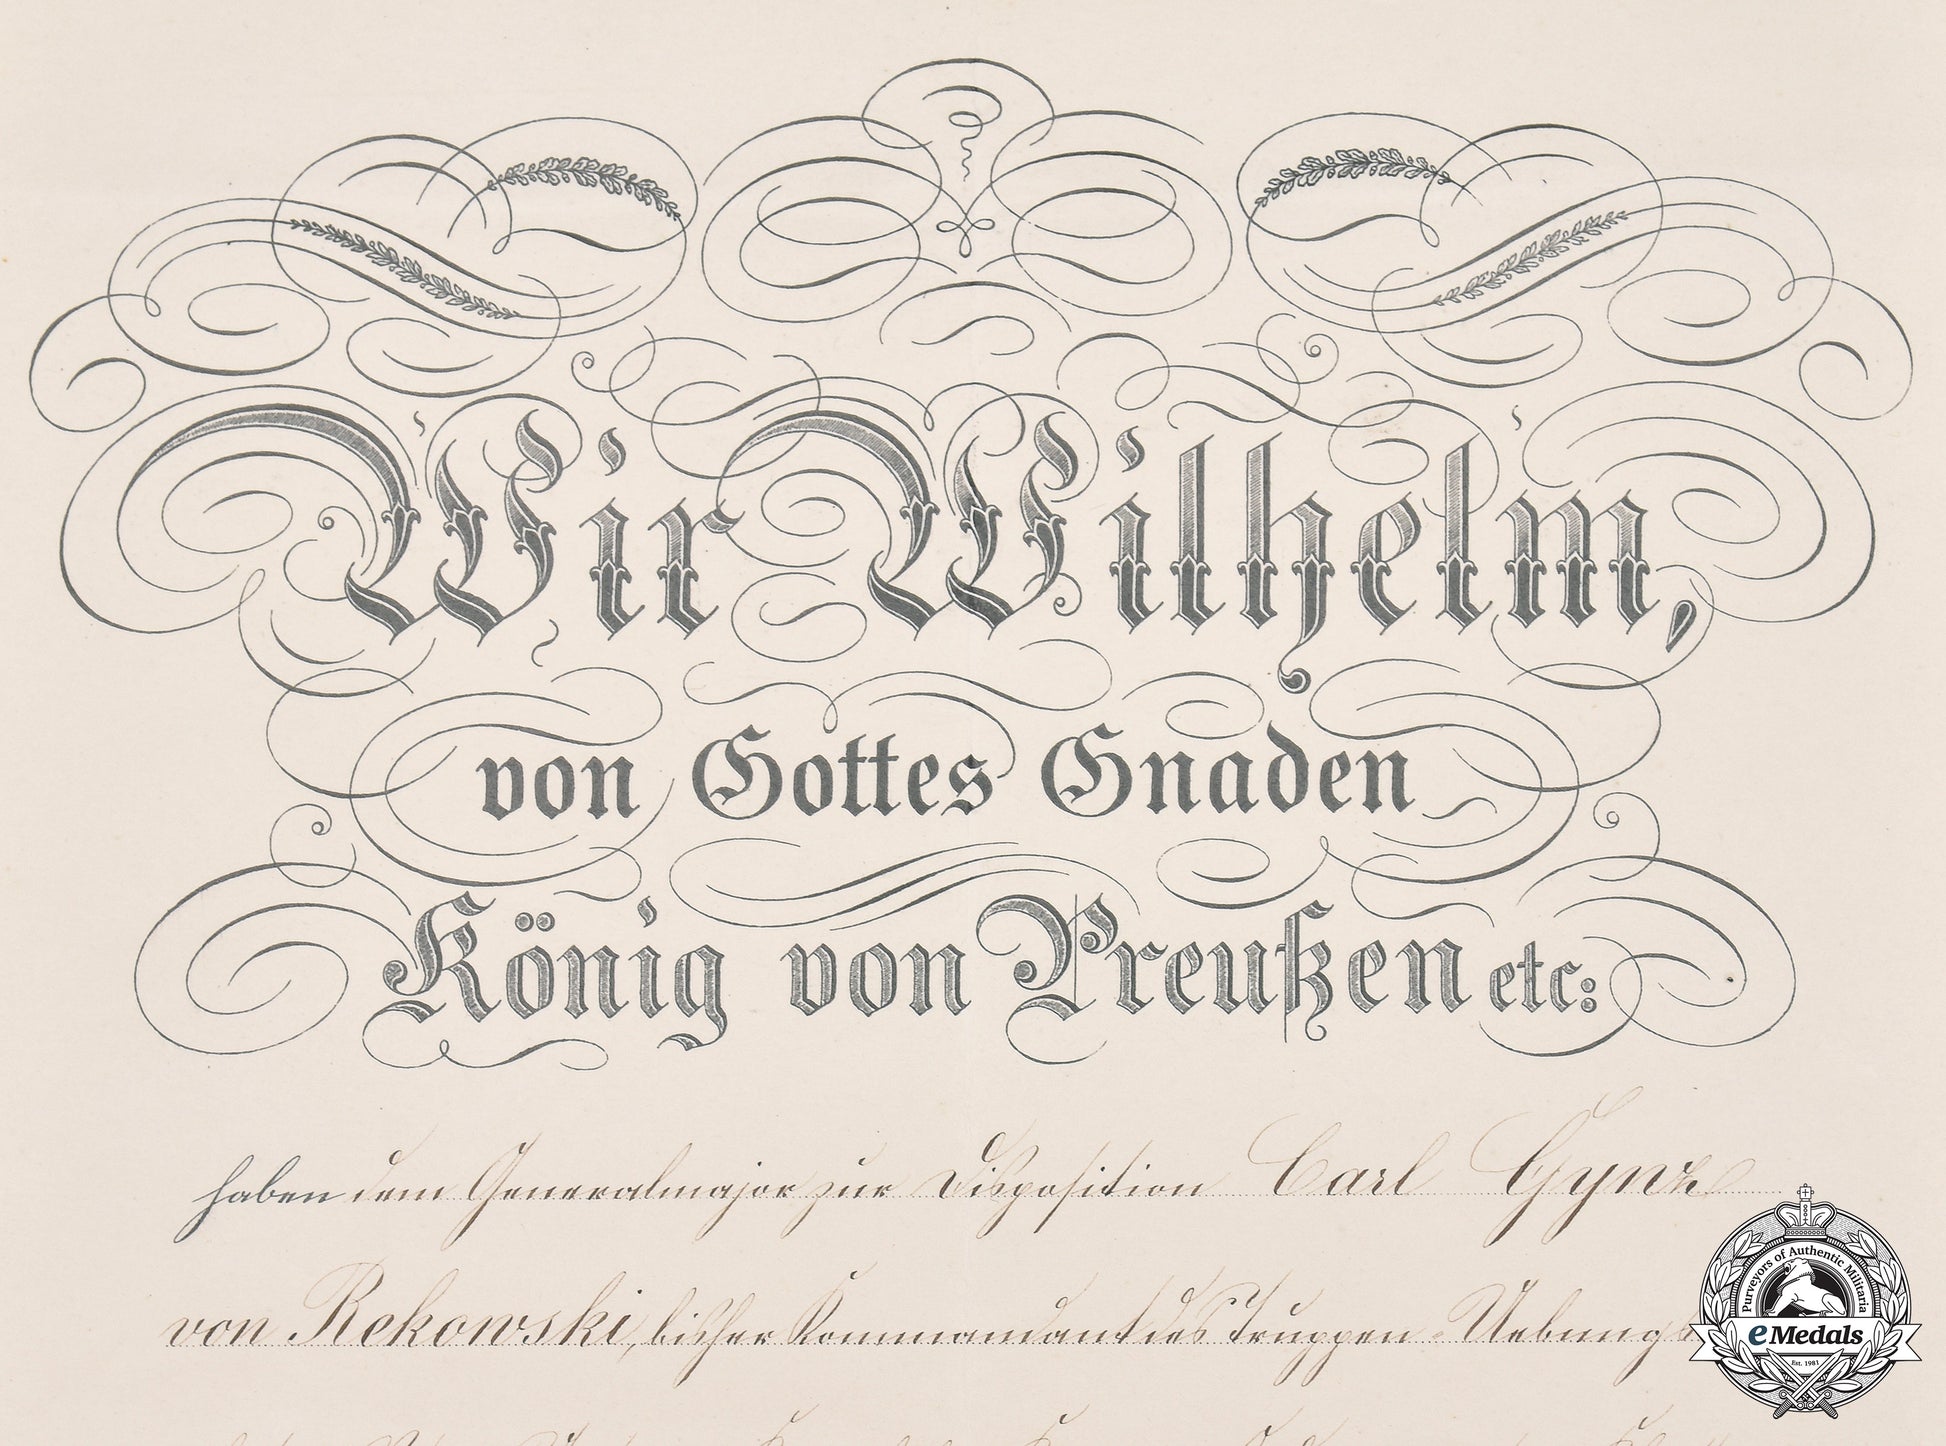 Wir Wilhelm,
von Gottes Gnaden
König von Preußen etc:
haben dem Generalmajor zur Disposition Carl Gynz
von Rekowski, bisher Kommandant des Truppen-Uebungs
Purveyors of Authentic Militaria
eMedals
Est. 1983